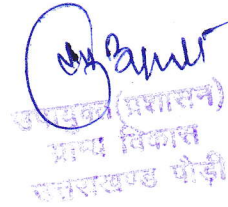 उपायुक्त (प्रशासन)
ग्राम्य विकास
उत्तराखण्ड पौड़ी